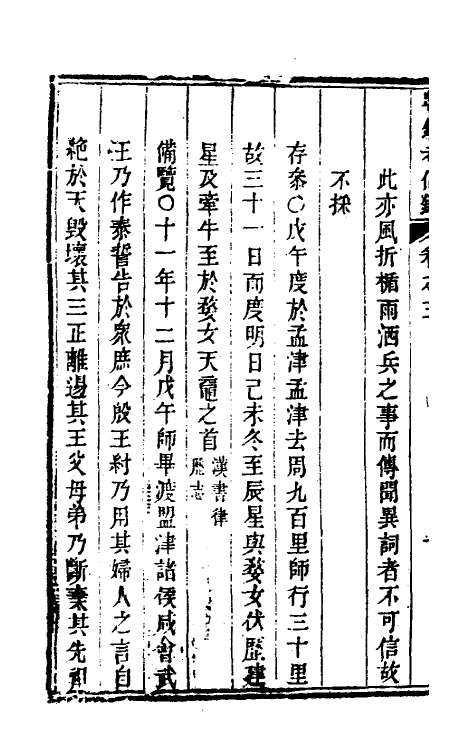 豐鎬考信錄 卷之三
此亦風折楯雨洒兵之事而傳聞異詞者不可信故
不採
存參〇戊午度於孟津孟津去周九百里師行三十里
故三十一日而度明日己未冬至辰星與婺女伏歷建
星及牽牛至於婺女天黿之首漢書律歷志
備覽〇十一年十二月戊午師畢渡盟津諸侯咸會武
王乃作泰誓告於衆庶今殷王紂乃用其婦人之言自
絶於天毀壞其三正離逷其王父母弟乃斷棄其先祖